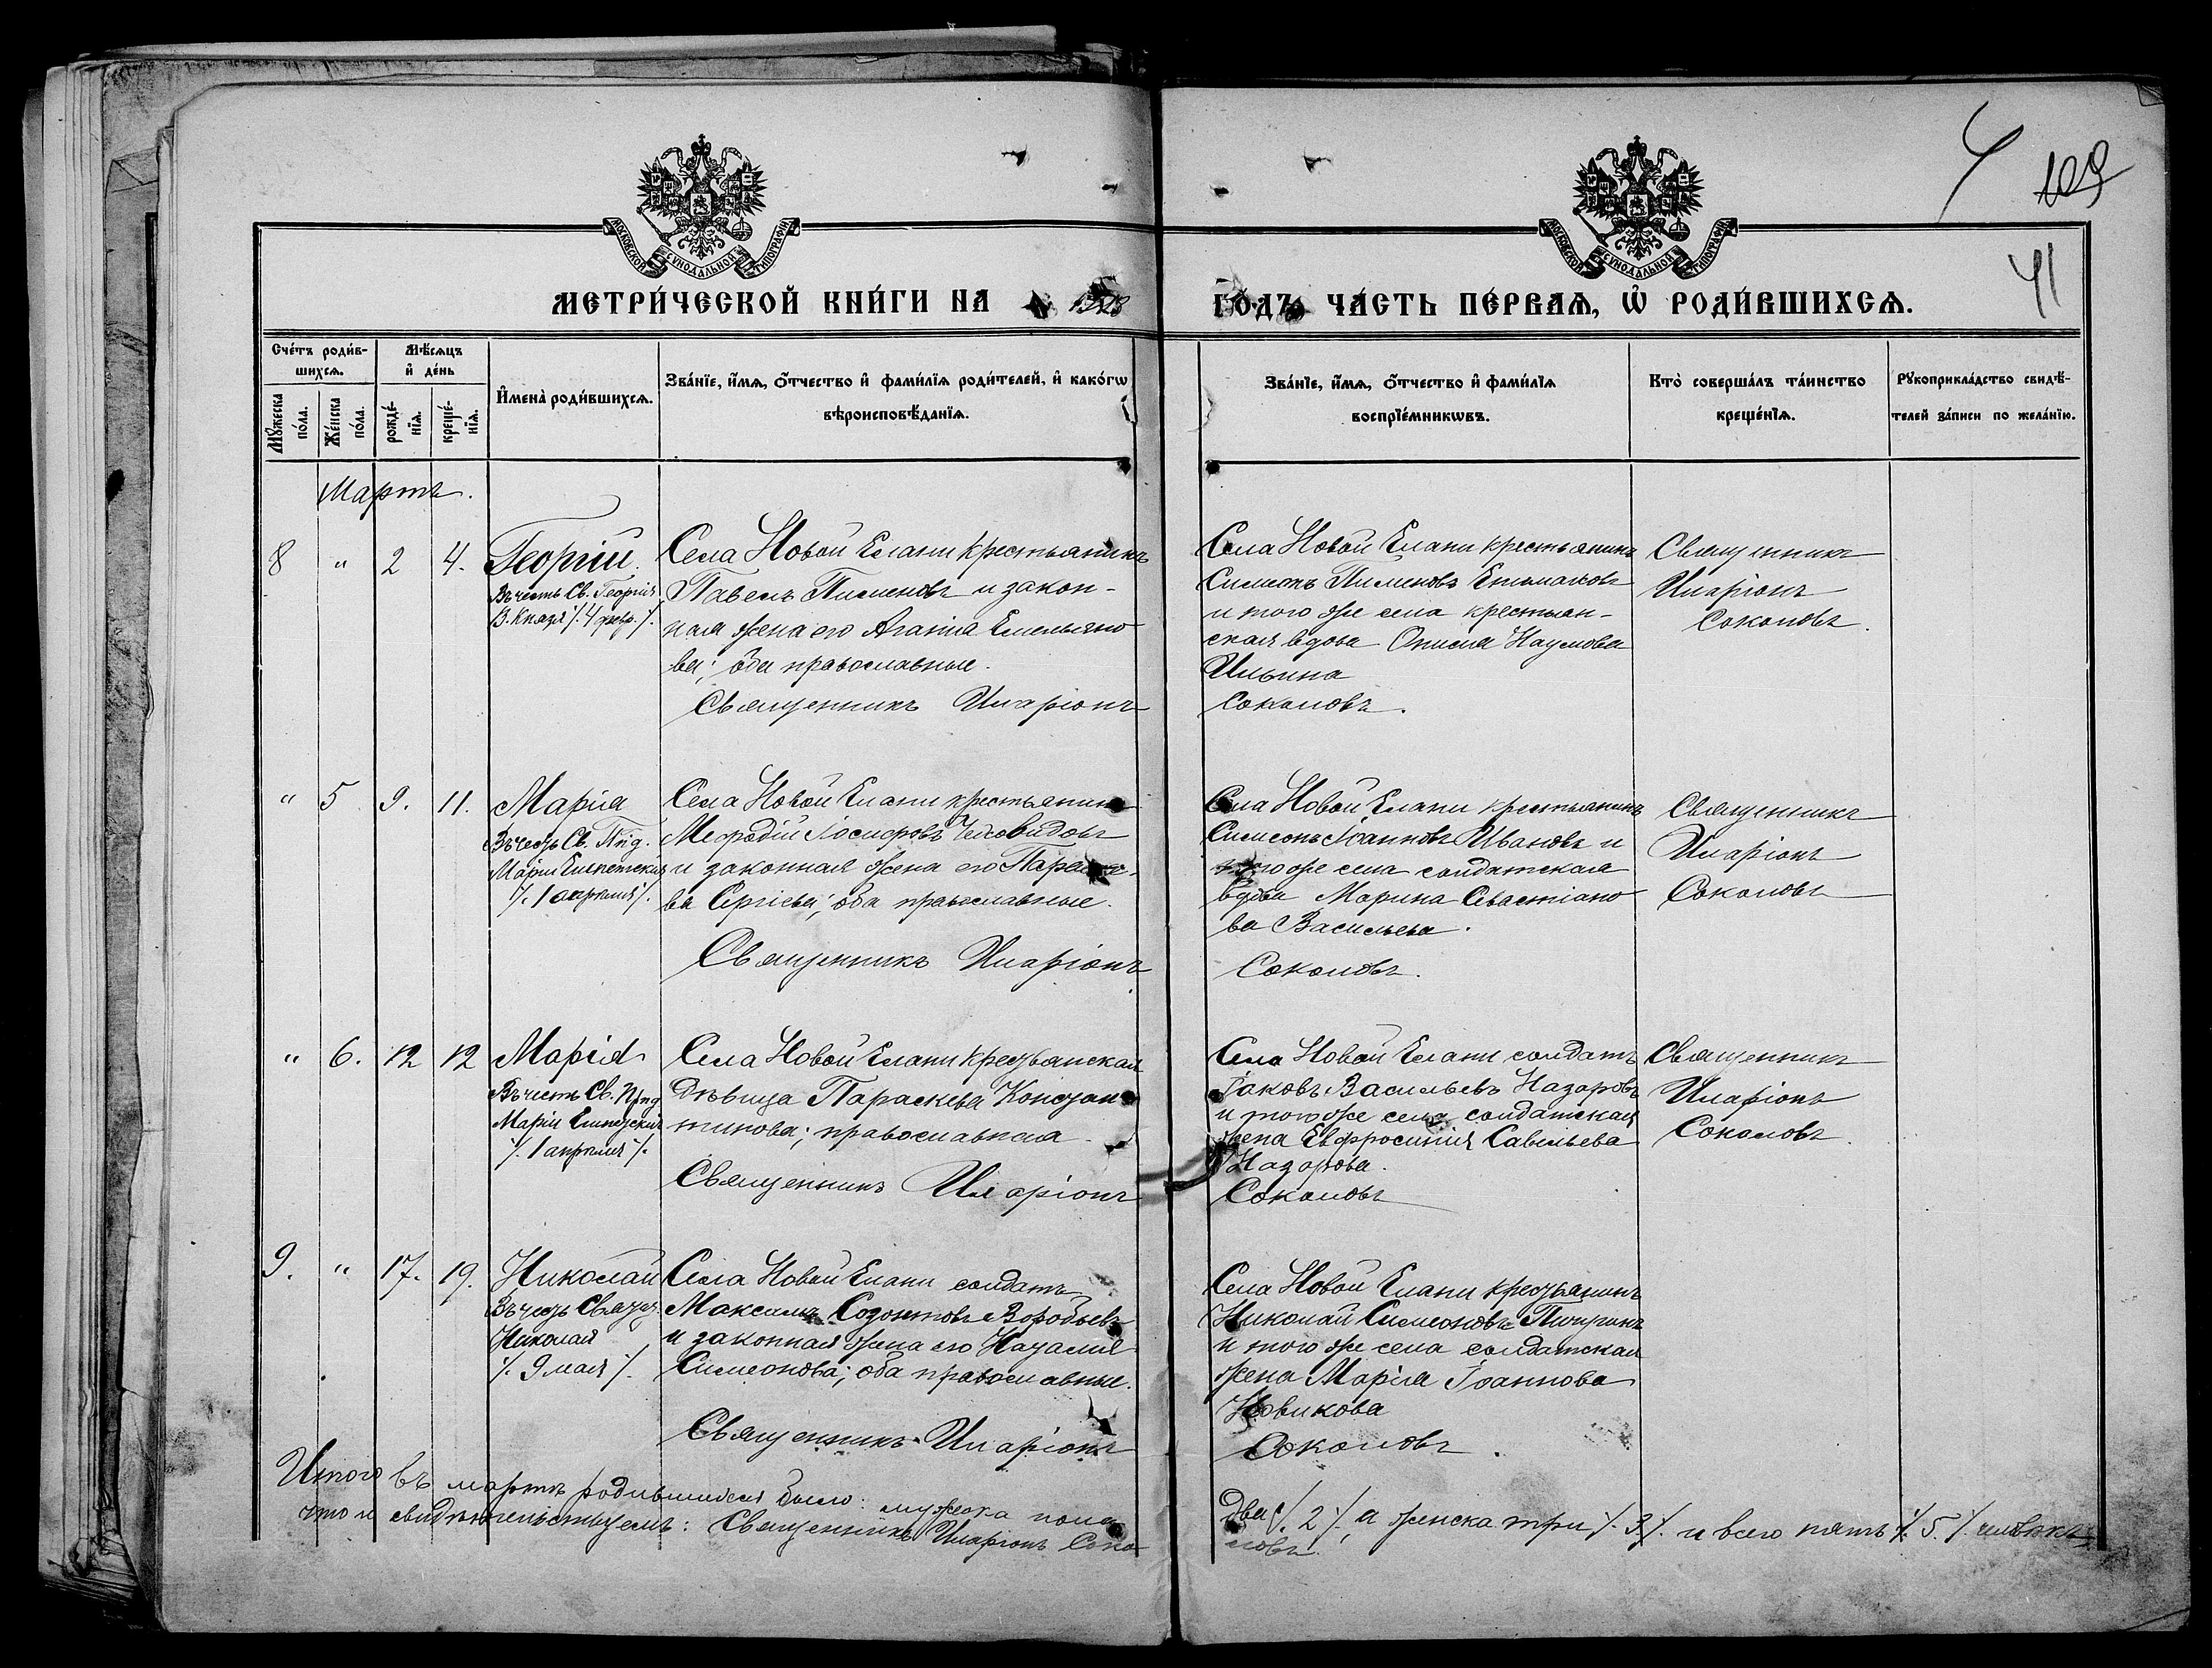 4
109
41
МОСКОВСКОЙ СУНОДАЛЬНОЙ ТИПОГРАФІИ
МОСКОВСКОЙ СУНОДАЛЬНОЙ ТИПОГРАФІИ
МЕТРИ́ЧЕСКОЙ КНИ́ГИ НА
ГО́ДЪ ЧА́СТЬ ПЕ́РВАѦ, Ѡ҆ РОДИ́ВШИХСѦ.
Сче́тъ роди́в-
шихсѧ.
Мѣ́сѧцъ
и҆ де́нь
Мꙋ́жеска по́ла.
Же́нска по́ла.
рожде́-
нїѧ.
креще́-
нїѧ.
И҆мена̀ роди́вшихсѧ.
Зва́нїе, и҆́мѧ, ѻ҆́тчество и҆ фами́лїѧ роди́телей, и҆ како́гѡ
вѣроисповѣ́данїѧ.
Зва́нїе, и҆́мѧ, ѻ҆́тчество и҆ фами́лїѧ
воспрїе́мникѡвъ.
Кто̀ соверша́лъ та́инство
креще́нїѧ.
Рꙋкоприкла́дство свидѣ́-
телей за́писи по жела́нїю.
Мартъ.
8 " 2 4. Георгій
Въ честь Св. Георгія
В. Князя /. 4 февр. /.
Села Новой Елани крестьянинъ
Павелъ Пименовъ и закон-
ная жена его Агапія Емельяно
ва; оба православные.
Священникъ Иларіонъ
Села Новой Елани крестьянинъ
Симеонъ Пименовъ
и того же села крестьян-
ская вдова Наумова
Ильина
Соколовъ.
Священникъ
Иларіонъ
Соколовъ.
" 5 9. 11. Марія
Въ честь Св. Прп.
Маріи Египетскія
/. 1 апрѣля /.
Села Новой Елани крестьянинъ
Мефодій Іосифовъ
и законная жена его Параске-
ва Сергіева; оба православные.
Священникъ Иларіонъ
Села Новой Елани крестьянинъ
Симеонъ Іоанновъ Ивановъ и
того же села солдатская
вдова Марина Севастіано
ва Васильева.
Соколовъ.
Священникъ
Иларіонъ
Соколовъ
" 6. 12 12 Марія
Въ честь Св. Прпд
Маріи Египетскія
/. 1 апрѣля /.
Села Новой Елани крестьянская
дѣвица Параскева Констан
тинова; православная.
Священникъ Иларіонъ
Села Новой Елани солдатъ
Іаковъ Васильевъ Назаровъ
и того же села солдатская
жена Евфросинія Савельева
Назарова.
Соколовъ
Священникъ
Иларіонъ
Соколовъ.
9. " 17. 19. Николай
Въ честь Святит.
Николая
/. 9 мая /.
Села Новой Елани солдатъ
Максимъ Созонтовъ Воробьевъ
и законная жена его Наталія
Симеонова; оба православные.
Священникъ Иларіонъ
Села Новой Елани крестьянинъ
Николай Симеоновъ
и того же села солдатская
жена Марія Іоаннова
Новикова
Соколовъ.
Итого въ мартѣ родившихся было: мужеска пола
два /. 2 /. а женска три /. 3 /. и всего пять /. 5. /. человѣкъ
что и свидѣтельствуемъ: Священникъ Иларіонъ Соко
ловъ.